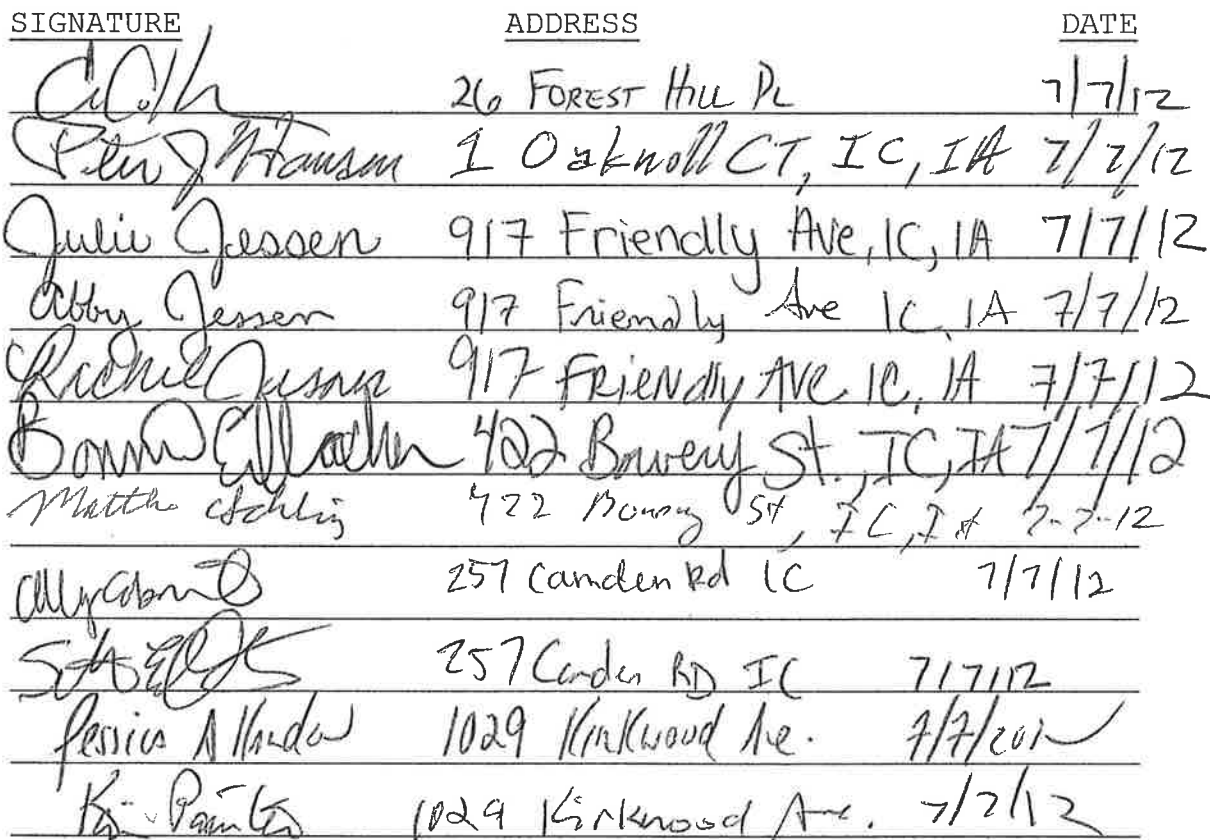 SIGNATURE ADDRESS DATE
26 FOREST HILL PL 7/7/12
Peter J Hansen 1 Oaknoll CT, IC, IA 7/7/12
Julie Jessen 917 Friendly Ave, IC, IA 7/7/12
Abby Jessen 917 Friendly Ave IC, IA 7/7/12
917 FRIENdly AVE IC, IA 7/7/12
422 Bowery St., IC, IA 7/7/12
422 Bowery St, IC, IA 7-7-12
257 Camden Rd IC 7/7/12
257 Camden RD IC 7/7/12
1029 Kirkwood Ave. 7/7/2012
Kim Painter 1029 Kirkwood Ave. 7/7/12